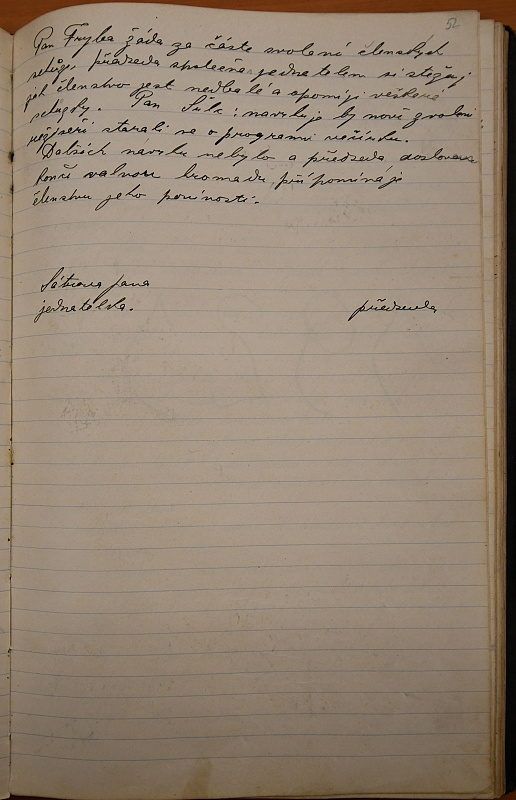 52
Pan Fryba žáda za části svolené členských
schůze, předseda společne jednatelem si stěžují
jak členstvo jest nedbalé a opomíjí veškeré
schuzky. Pan Sálc: navrhuje by nově zvolení
režiséři starali se o programi večírku.
Dalších návrhu nebylo a předseda doslovem
končí valnou hromadu připomínáje
členstvu jeho povinosti.
Jana
jednatelka. předseda